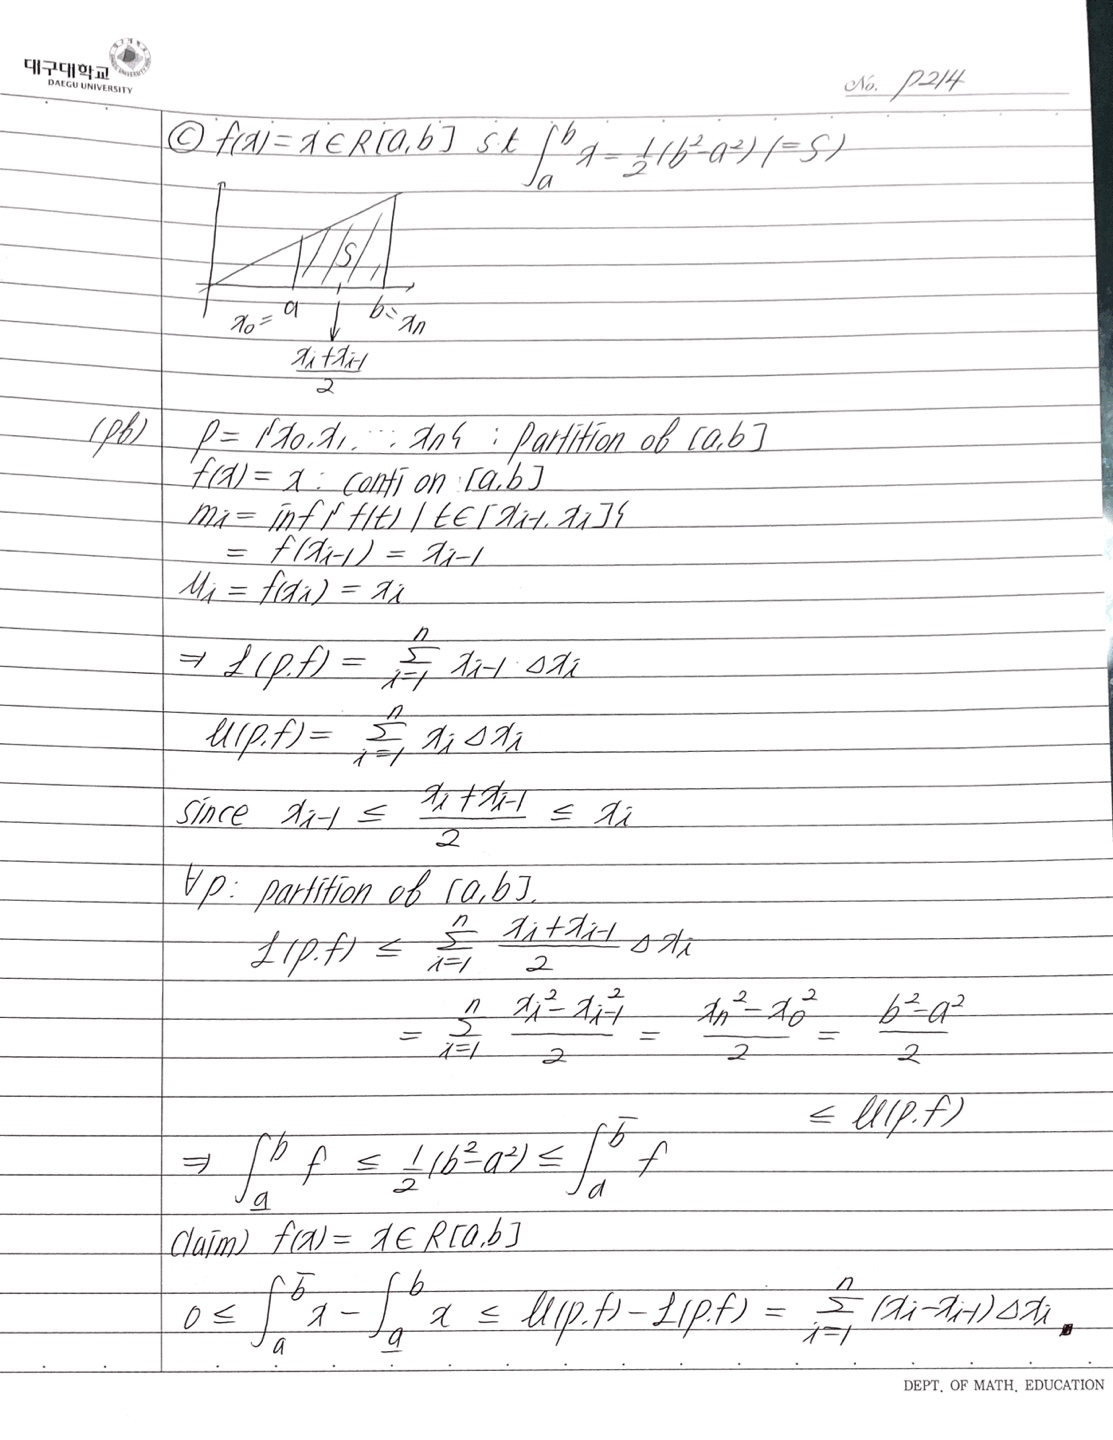 대구대학교
DAEGU UNIVERSITY
No. P214
ⓒ f(x) = x ∈ R[a,b] s.t ∫_a^b x = 1/2(b²-a²) (=S)
S
x₀ = a b = xₙ
(xᵢ+xᵢ₋₁)/2
(pf) P = {x₀, x₁, ⋯, xₙ} : partition of [a,b]
f(x) = x : conti on [a,b]
mᵢ = inf{ f(t) | t∈[xᵢ₋₁, xᵢ]}
= f(xᵢ₋₁) = xᵢ₋₁
Mᵢ = f(xᵢ) = xᵢ
⇒ L(p.f) = Σ_{i=1}^n xᵢ₋₁ · Δxᵢ
U(p.f) = Σ_{i=1}^n xᵢ Δxᵢ
since xᵢ₋₁ ≤ (xᵢ+xᵢ₋₁)/2 ≤ xᵢ
∀p : partition of [a,b].
L(p.f) ≤ Σ_{i=1}^n (xᵢ+xᵢ₋₁)/2 Δxᵢ
= Σ_{i=1}^n (xᵢ²-xᵢ₋₁²)/2 = (xₙ²-x₀²)/2 = (b²-a²)/2
≤ U(p.f)
⇒ ∫_a̲^b f ≤ 1/2(b²-a²) ≤ ∫_a^b̅ f
claim) f(x) = x ∈ R[a,b]
0 ≤ ∫_a^b̅ x - ∫_a̲^b x ≤ U(p.f) - L(p.f) = Σ_{i=1}^n (xᵢ-xᵢ₋₁)Δxᵢ
DEPT. OF MATH. EDUCATION